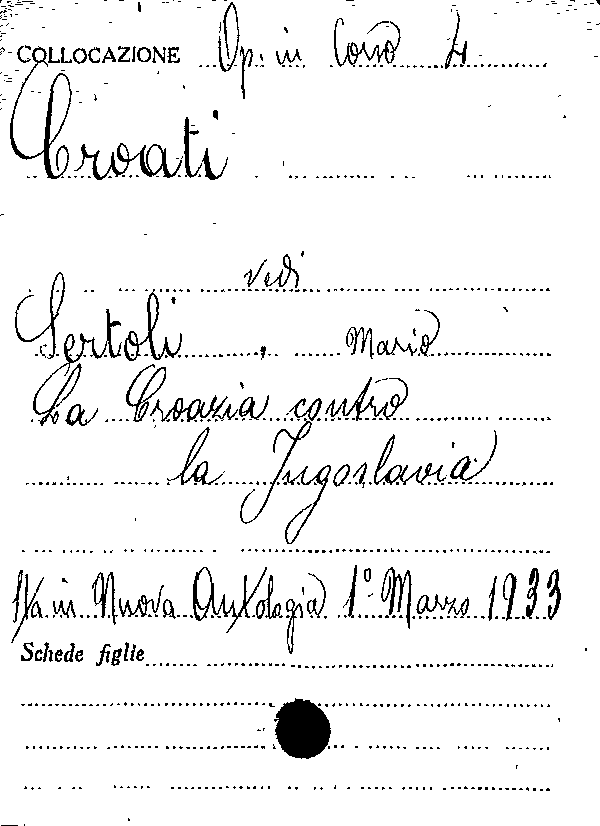 COLLOCAZIONE Op. in Corso 4
Croati
vedi
Sertoli, Mario
La Croazia contro
la Jugoslavia
Sta in Nuova Antologia 1º Marzo 1933
Schede figlie